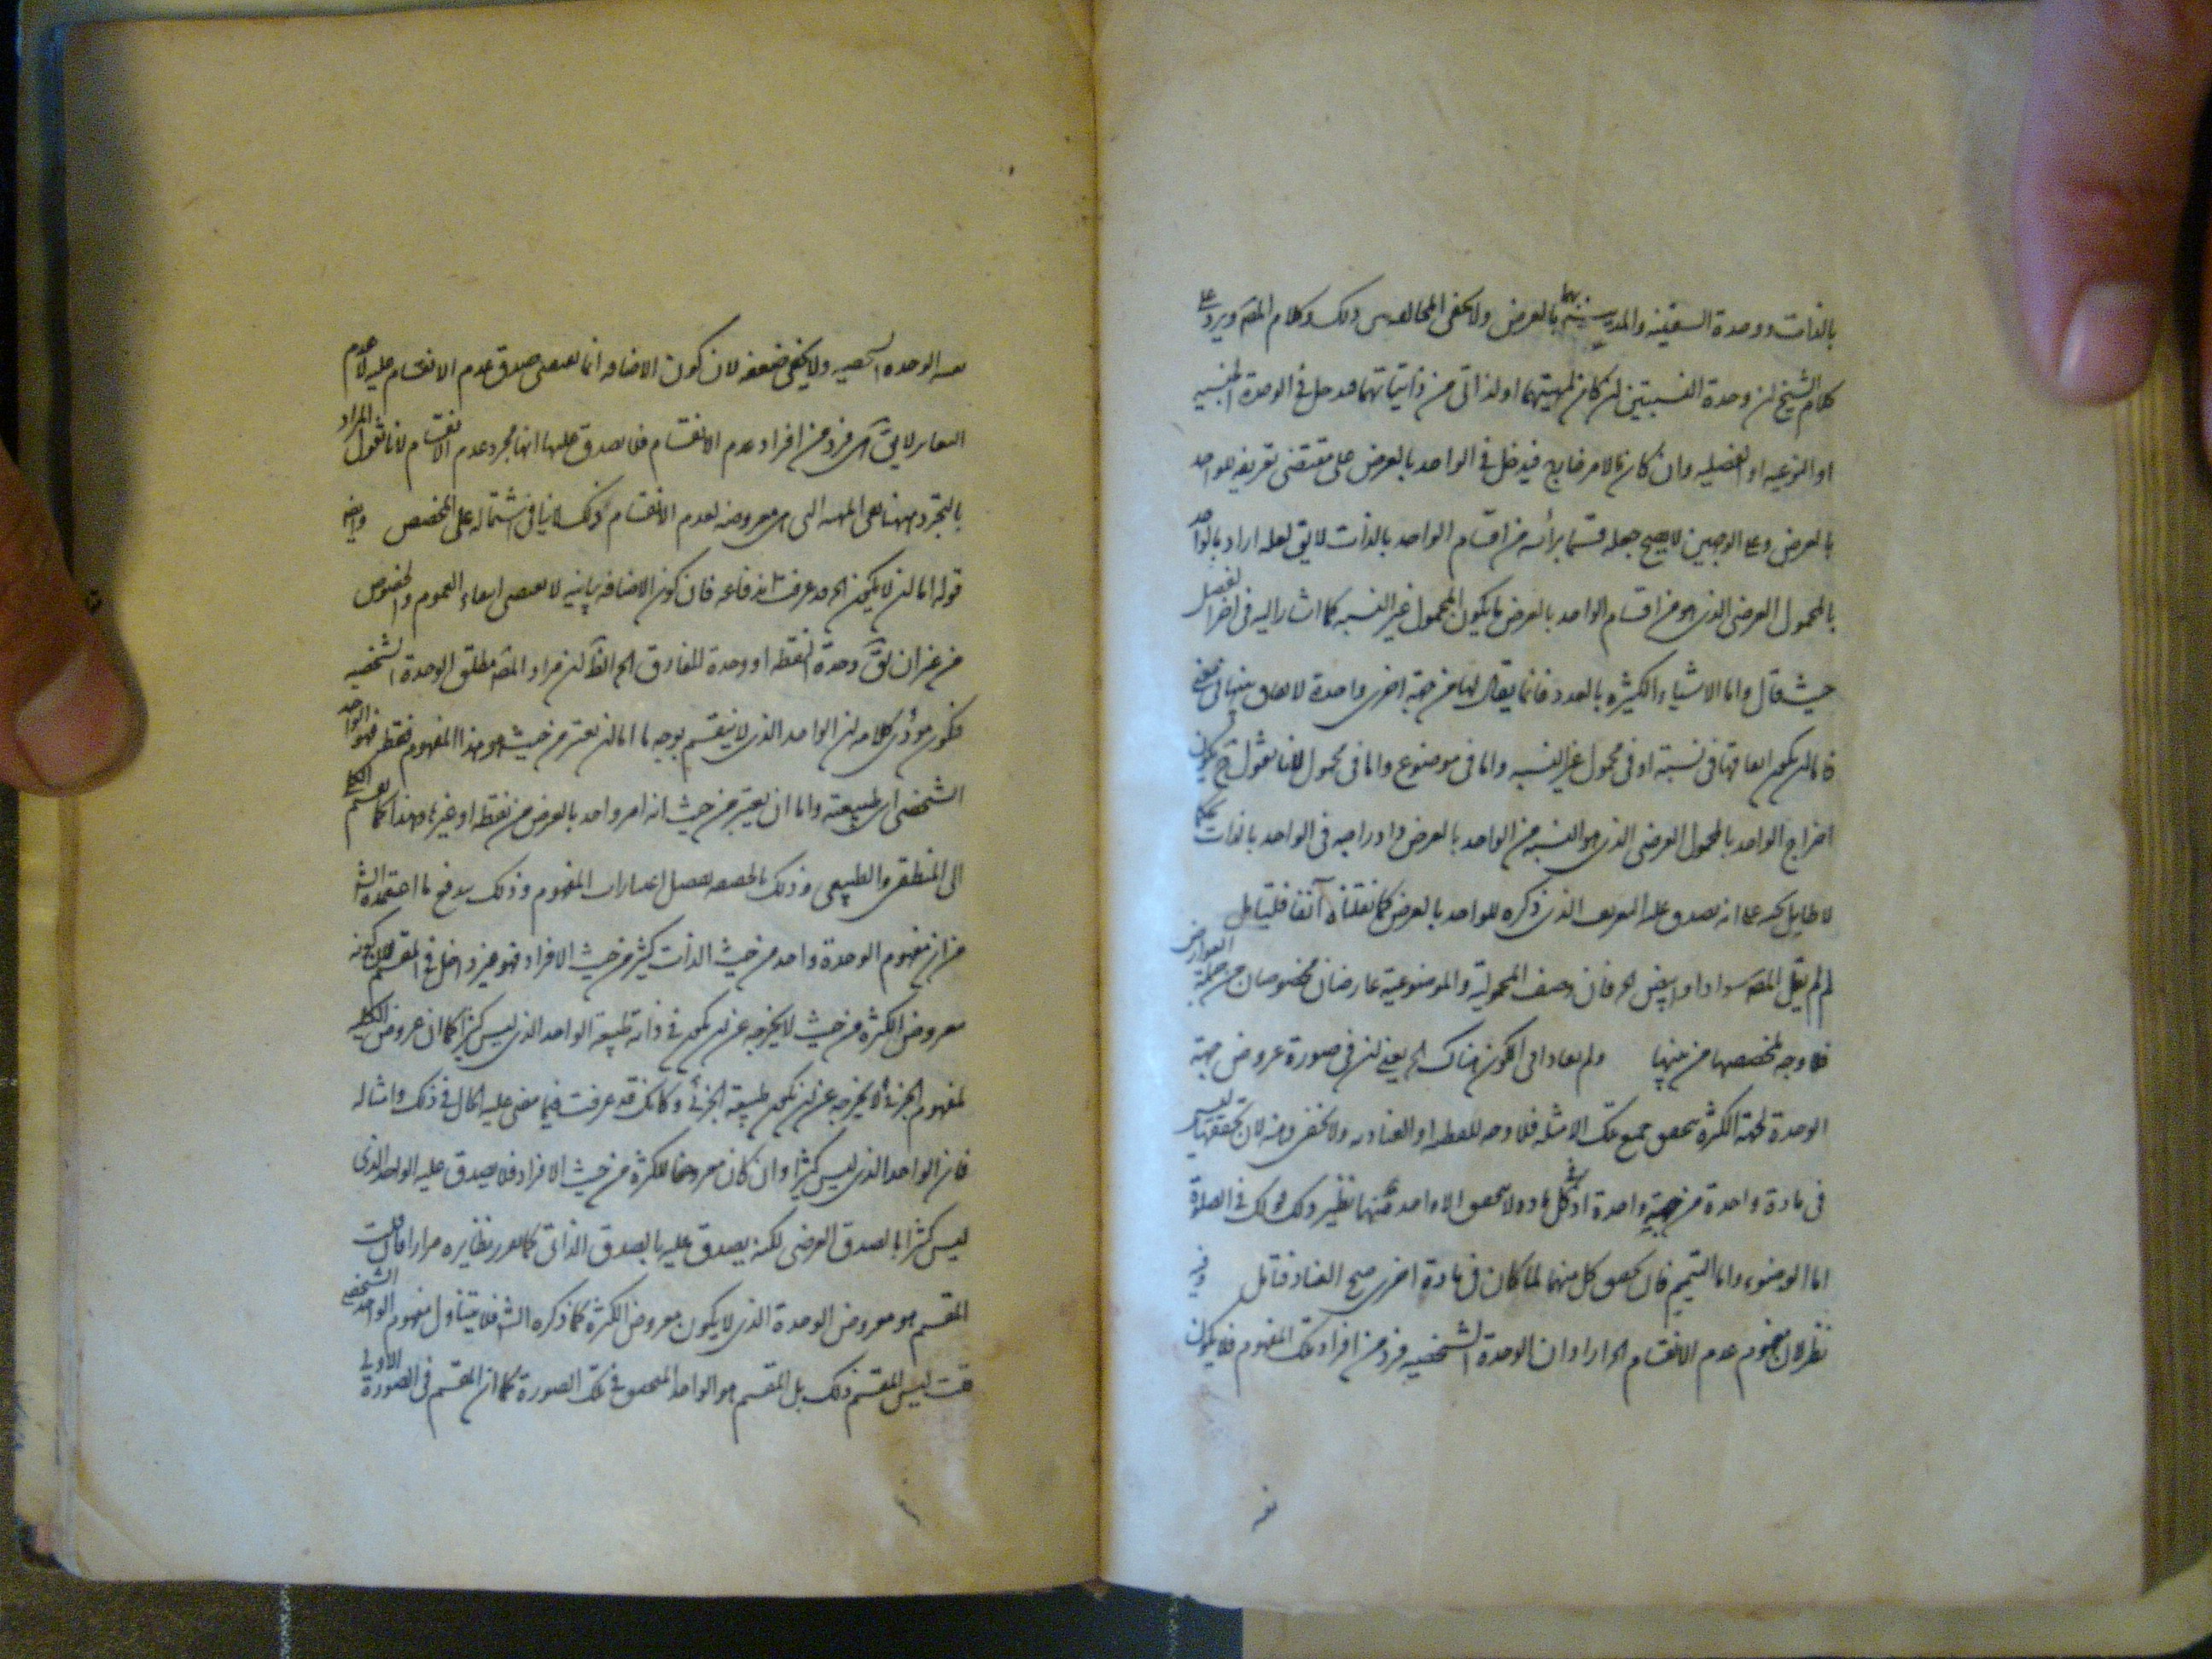 بالذات ووحدة السفينه والمدينة بهما بالعرض ولا يخفى المخالفه بين ذلك وكلام المصـ ويرد على
كلام الشيخ ان وحدة النسبتين ان كان لمهيتهما او لذاتى من ذاتياتهما فدخل فى الوحدة الجنسيه
او النوعيه او الفصليه وان كان لامر خارج فيدخل فى الواحد بالعرض على مقتضى تعريفه للواحد
بالعرض وعلى الوجهين لا يصح جعله قسما برأسه من اقسام الواحد بالذات لا يق لعله اراد بالواحد
بالمحمول العرضى الذى هو من اقسام الواحد بالعرض ما يكون المحمول غير النسبه كما اشار اليه فى اخر الفصل
حيث قال واما الاشياء الكثيره بالعدد فانما يقال لها من جهة اخرى واحدة لاتفاق بينها فى معنى
فاما ان يكون اتفاقها فى نسبة او فى محمول غير النسبه واما فى موضوع واما فى محمول لانا نقول ح يكون
اخراج الواحد بالمحمول العرضى الذى هو النسبه من الواحد بالعرض وادراجه فى الواحد بالذات تحكما
لا طايل تحته على انه يصدق عليه التعريف الذى ذكره للواحد بالعرض كما نقلناه آنفا فليتامل
لم لم يقل المصـ سوادا او ابيض الخ فان وصف المحمولية والموضوعية عارضان مخصوصان من جملة العوارض
فلا وجه لتخصيصها من بينها ولم يعاد اى الكون هناك الخ يعنى ان فى صورة عروض جهة
الوحدة لجهة الكثرة يتحقق جميع تلك الامثله فلا وجه للفظه او العناديه ولا يخفى وهنه لان تحققها ليس
فى مادة واحدة من جهة واحدة اذ فى كل ماده لا يتحقق الا واحد منها نظير ذلك قولك فى الصلوة
اما الوضوء واما التيمم فان تحقق كل منهما لما كان فى مادة اخرى صح العناد فتامل وفيه
نظر لان مفهوم عدم الانقسام الخ اراد ان الوحدة الشخصيه فرد من افراد تلك المفهوم فلا يكون
نفسه الوحدة الشخصيه ولا يخفى ضعفه لان كون الاضافه انما يقتضى صدق عدم الانقسام عليه لا عدم
التغاير لا يق اى فرد من افراد عدم الانقسام فلا يصدق عليها انها مجرد عدم الانقسام لانا نقول المراد
بالتجرد ههنا نفى المهيه التى هى معروضه لعدم الانقسام وذلك لا ينافى اشتماله على المخصص وايضا
قوله اما ان لا يكون الخ قد عرفت اندفاعه فان كون الاضافه بيانيه لا يقتضى انتفاء العموم والخصوص
من غير ان يق وحدة النقطه او وحدة المفارق الخ الظ ان مراد المصـ مطلق الوحدة الشخصيه
فيكون مؤدى كلامه ان الواحد الذى لا ينقسم بوجه ما اما ان يعتبر من حيث هو هذا المفهوم فقط فهو الواحد
الشخصى اى طبيعته واما ان يعتبر من حيث انه امر واحد بالعرض من نقطه او غيرها وهذا كما تقسم الكلى
الى المنطقى والطبيعى وذلك بالحقيقه تفصيل اعتبارات المفهوم وذلك يدفع ما اعتمده الشـ
من ان مفهوم الوحدة واحد من حيث الذات كثير من حيث الافراد فهو غير داخل فى المقسم لان كونه
معروض الكثرة من حيث لا يخرجه عن ان يكون فى ذاته طبيعة الواحد الذى ليس كثيرا كما ان عروض الكليه
لمفهوم الجزئى لا يخرجه عن ان يكون طبيعة الجزئى وكانك قد عرفت فيما مضى جلية الحال فى ذلك وامثاله
فان الواحد الذى ليس كثيرا وان كان معروضا للكثرة من حيث الافراد فلا يصدق عليه الواحد الذى
ليس كثيرا بالصدق العرضى لكنه يصدق عليه بالصدق الذاتى كما تقرر نظايره مرارا فان قلت
المقسم هو معروض الوحدة الذى لا يكون معروض الكثرة كما ذكره الشـ فلا يتناول مفهوم الواحد الشخصى
قلت ليس المقسم ذلك بل المقسم هو الواحد المتحقق فى تلك الصورة كما ان المقسم فى الصورة الاولى